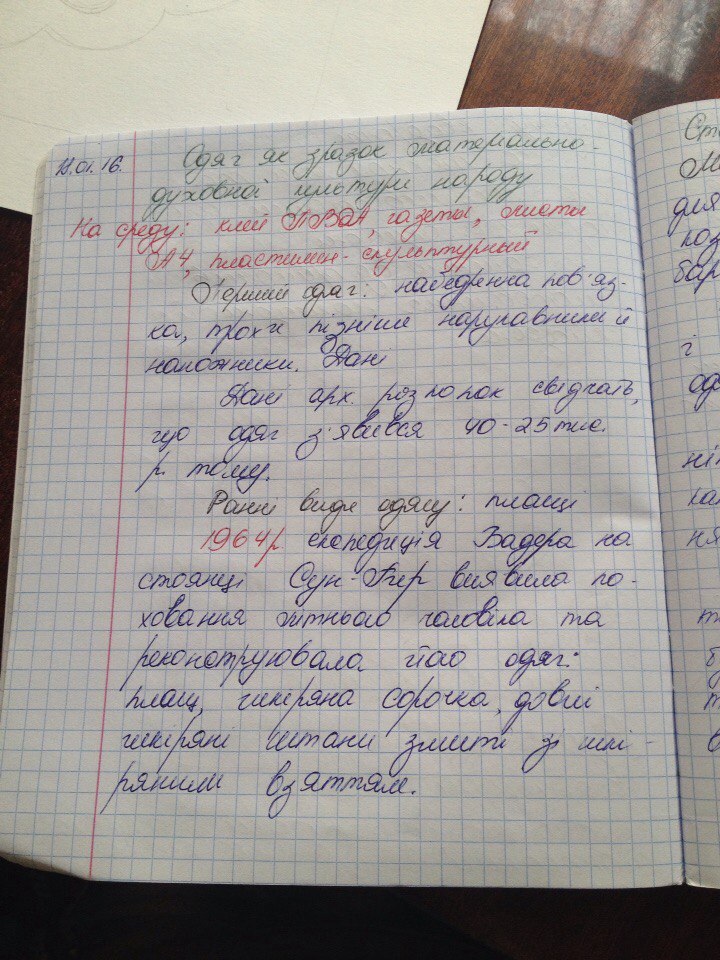 Одяг як зразок матеріально-
11.01.16.
духовної культури народу
На среду: клей ПВА, газеты, листы
А4, пластилин - скульптурный
Перший одяг: набедренна пов'яз-
ка, трохи пізніше нарукавники й
наножники. Дані
Дані арх. розкопок свідчать,
що одяг з'явився 40-25 тис.
р. тому.
Ранні види одягу: плащі
1964р експедиція Бадера на
стоянці Сун-гір виявила по-
ховання літнього чоловіка та
реконструювала його одяг:
плащ, шкіряна сорочка, довгі
шкіряні штани зшиті зі шкі-
ряним взяттям.
Ст
для
поз
бар
і
од
ня
в